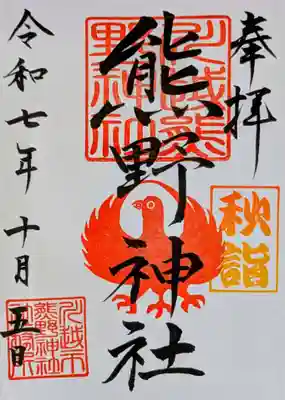 奉拝
秋詣
川越熊
野神社
熊野神社
令和七年十月五日
川越市
熊野神社